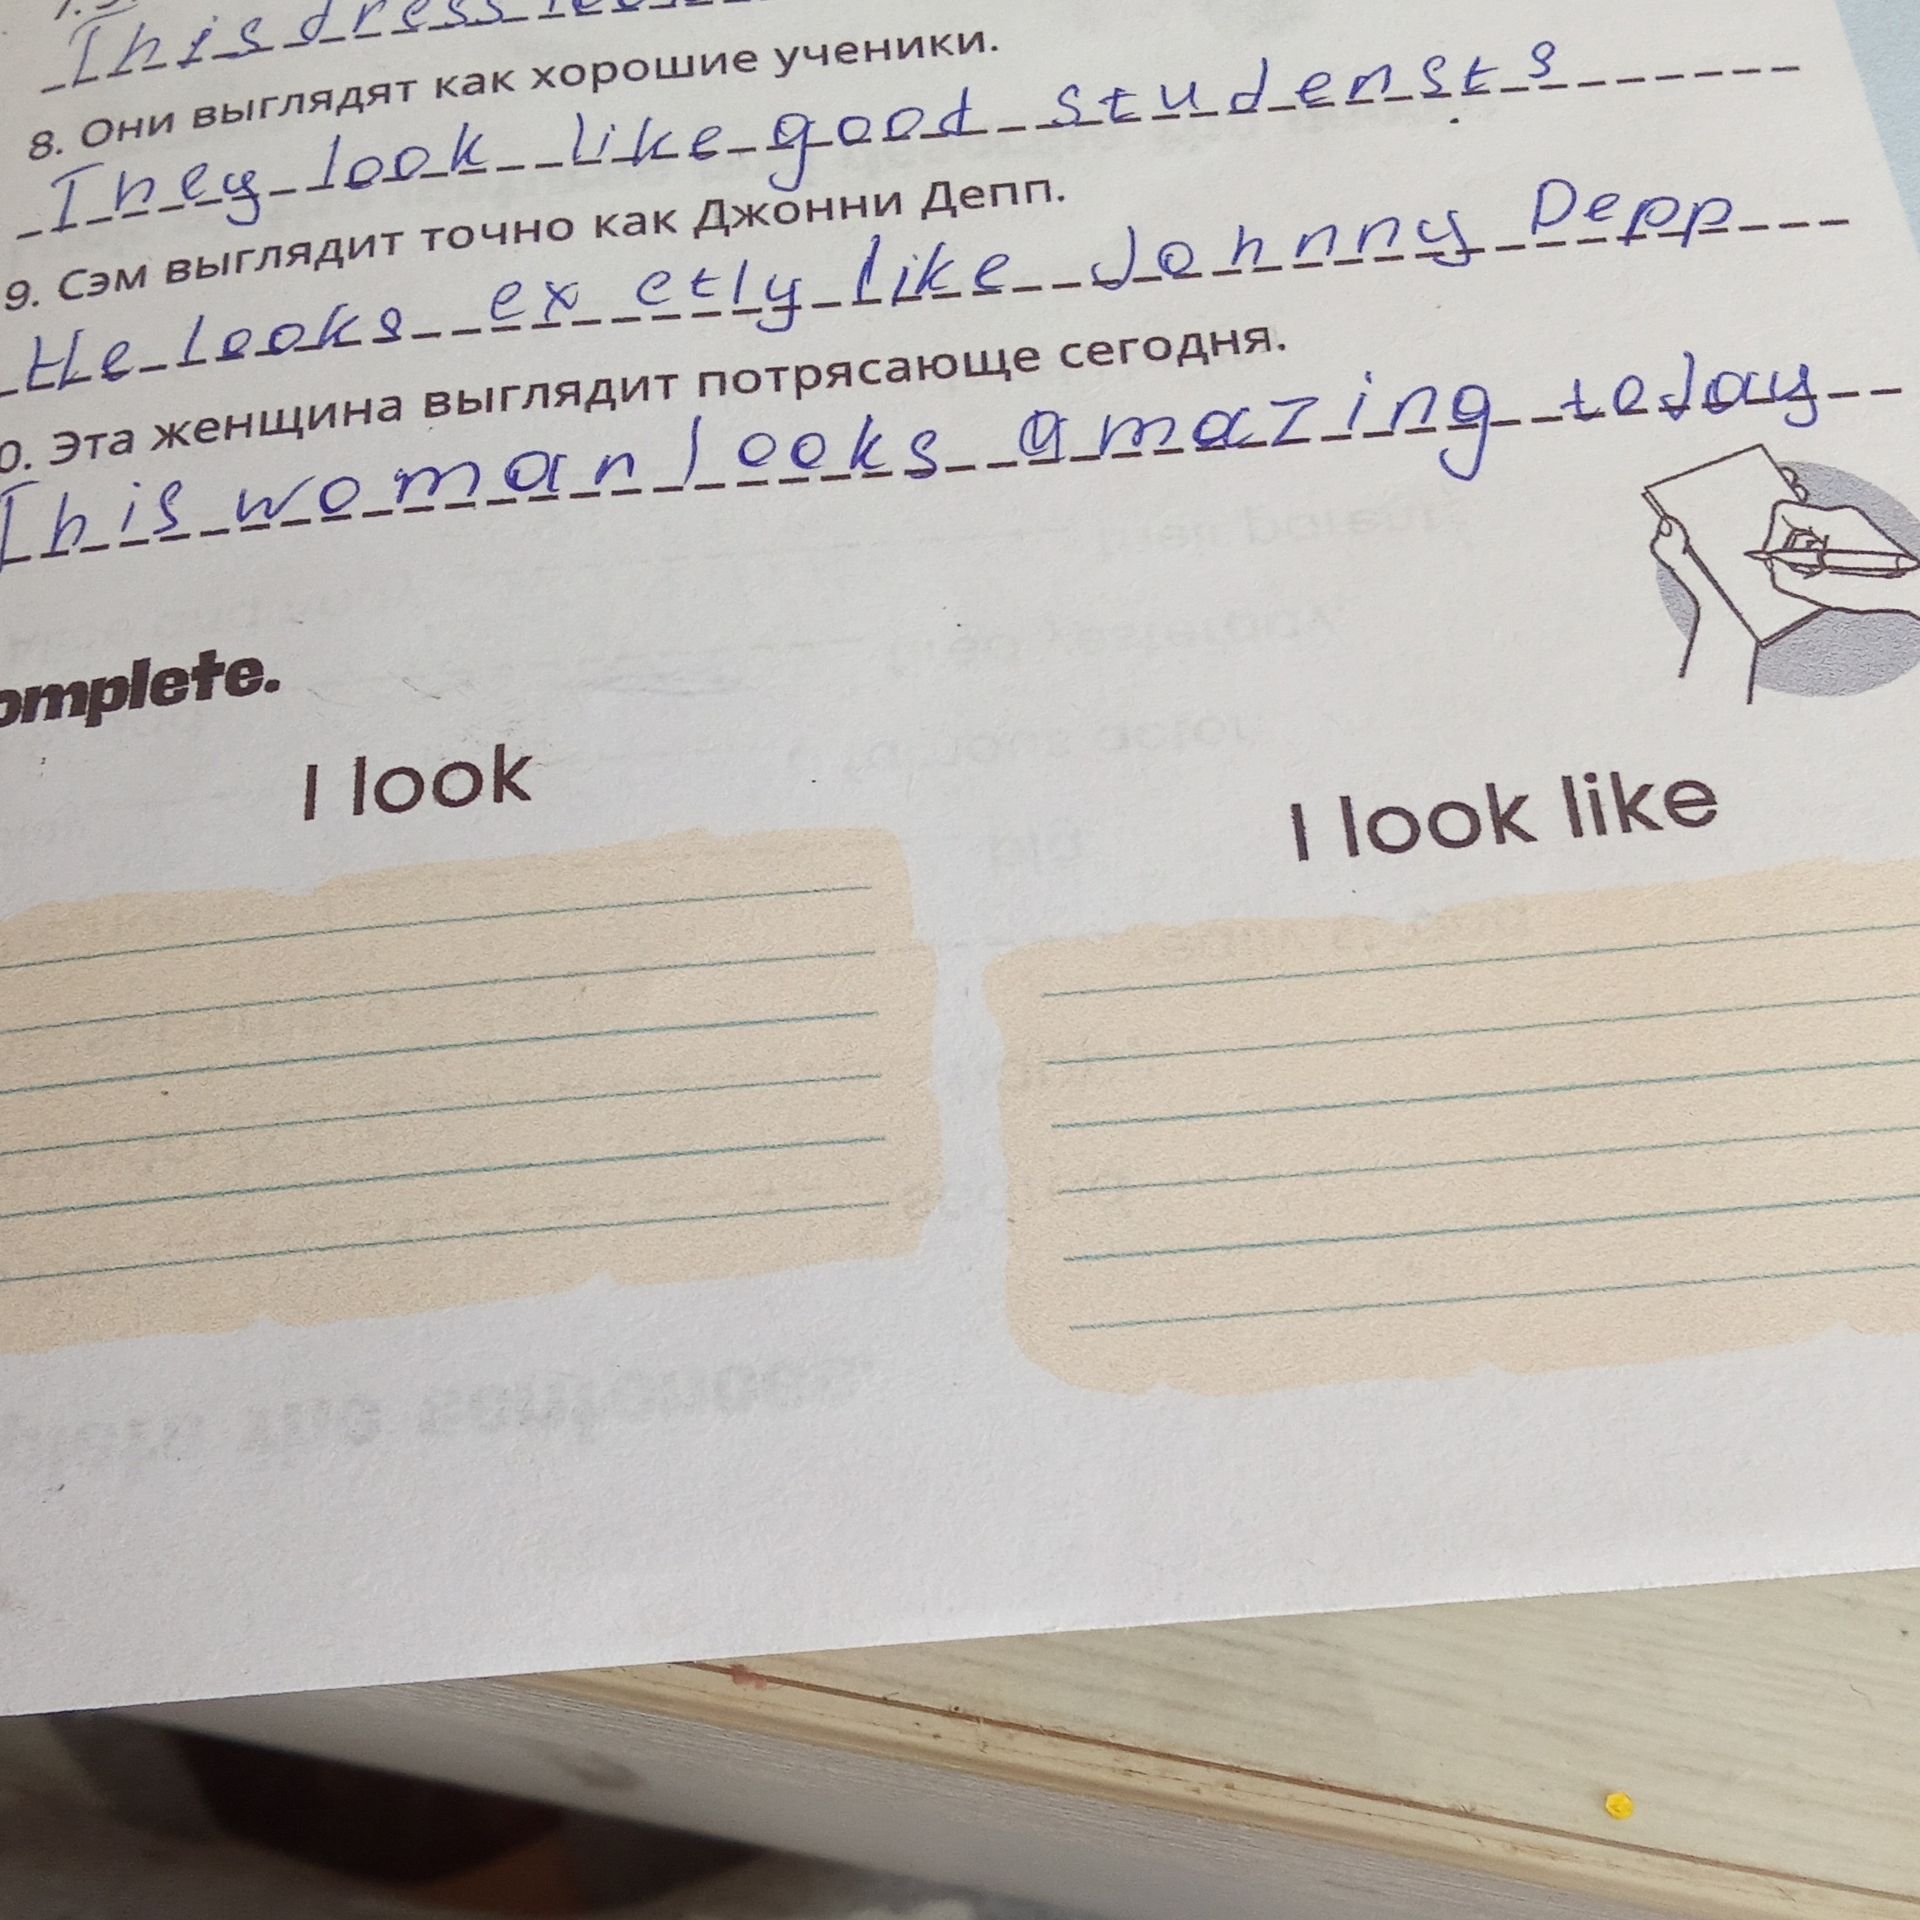 This dress
8. Они выглядят как хорошие ученики.
They look like good studensts
9. Сэм выглядит точно как Джонни Депп.
He looks exectly like Johnny Depp
0. Эта женщина выглядит потрясающе сегодня.
This woman looks amazing today
omplete.
I look
I look like